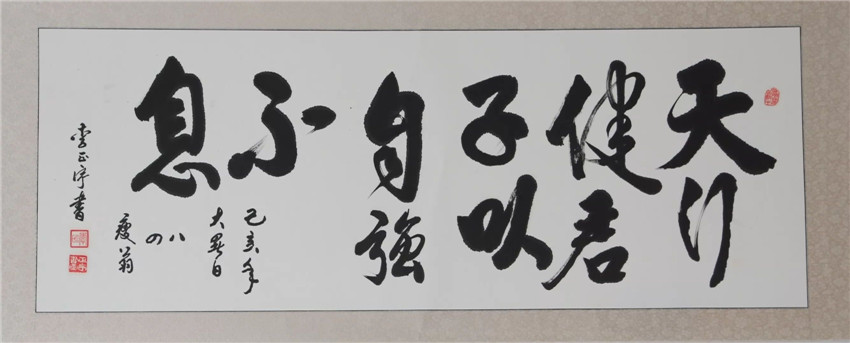 天行
健君
子以
自強
不
息
己亥年
大暑日
八
四
瘦翁
李正宇書